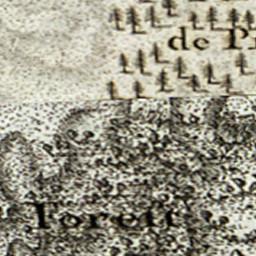 de Pr
Forest